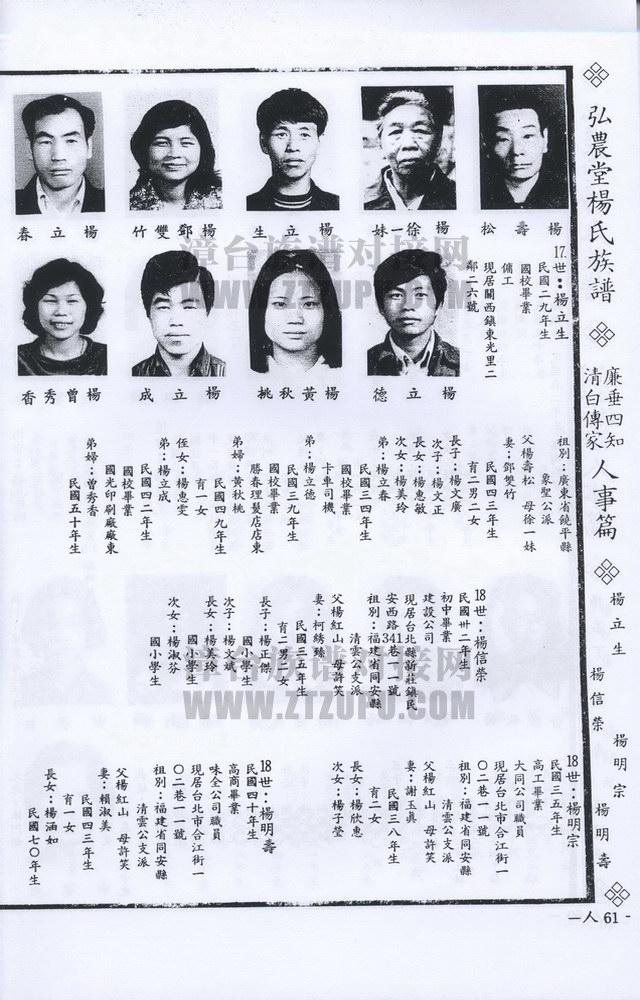 弘農堂楊氏族譜
廉垂四知
清白傳家
人事篇
楊立生
楊信榮
楊明宗
楊明壽
－人 61 -
楊壽松
楊徐一妹
楊立生
楊鄧雙竹
楊立春
楊立德
楊黃秋桃
楊立成
楊曾秀香
17世：楊立生
民國二九年生
國校畢業
傭工
現居關西鎮東光里二
鄰二六號
祖別：廣東省饒平縣
象聖公派
父楊壽松 母徐一妹
妻：鄧雙竹
民國四三年生
育二男二女
長子：楊文廣
次子：楊文正
長女：楊惠敏
次女：楊美玲
弟：楊立春
民國三四年生
國校畢業
卡車司機
弟：楊立德
民國三九年生
國校畢業
勝春理髮店店東
弟婦：黃秋桃
民國四九年生
育一女
侄女：楊惠雯
弟：楊立成
民國四二年生
國校畢業
國光印刷廠廠東
弟婦：曾秀香
民國五十年生
18世：楊信榮
民國卅二年生
初中畢業
建設公司
現居台北縣新莊鎮民
安西路341巷二一號
祖別：福建省同安縣
清雲公支派
父楊紅山 母許笑
妻：柯綉臻
民國三五年生
育二男二女
長子：楊正傑
國小學生
次子：楊文斌
國小學生
長女：楊美玲
國小學生
次女：楊淑芬
國小學生
18世：楊明宗
民國三五年生
高工畢業
大同公司職員
現居台北市合江街一
〇二巷一一號
祖別：福建省同安縣
清雲公支派
父楊紅山 母許笑
妻：謝玉真
民國三八年生
育二女
長女：楊欣惠
次女：楊子瑩
18世：楊明壽
民國四十年生
高商畢業
味全公司職員
現居台北市合江街一
〇二巷一一號
祖別：福建省同安縣
清雲公支派
父楊紅山 母許笑
妻：賴淑美
民國四三年生
育一女
長女：楊涵如
民國七〇年生
漳台族谱对接网
WWW.ZTZUPU.COM
漳台族谱对接网
WWW.ZTZUPU.COM